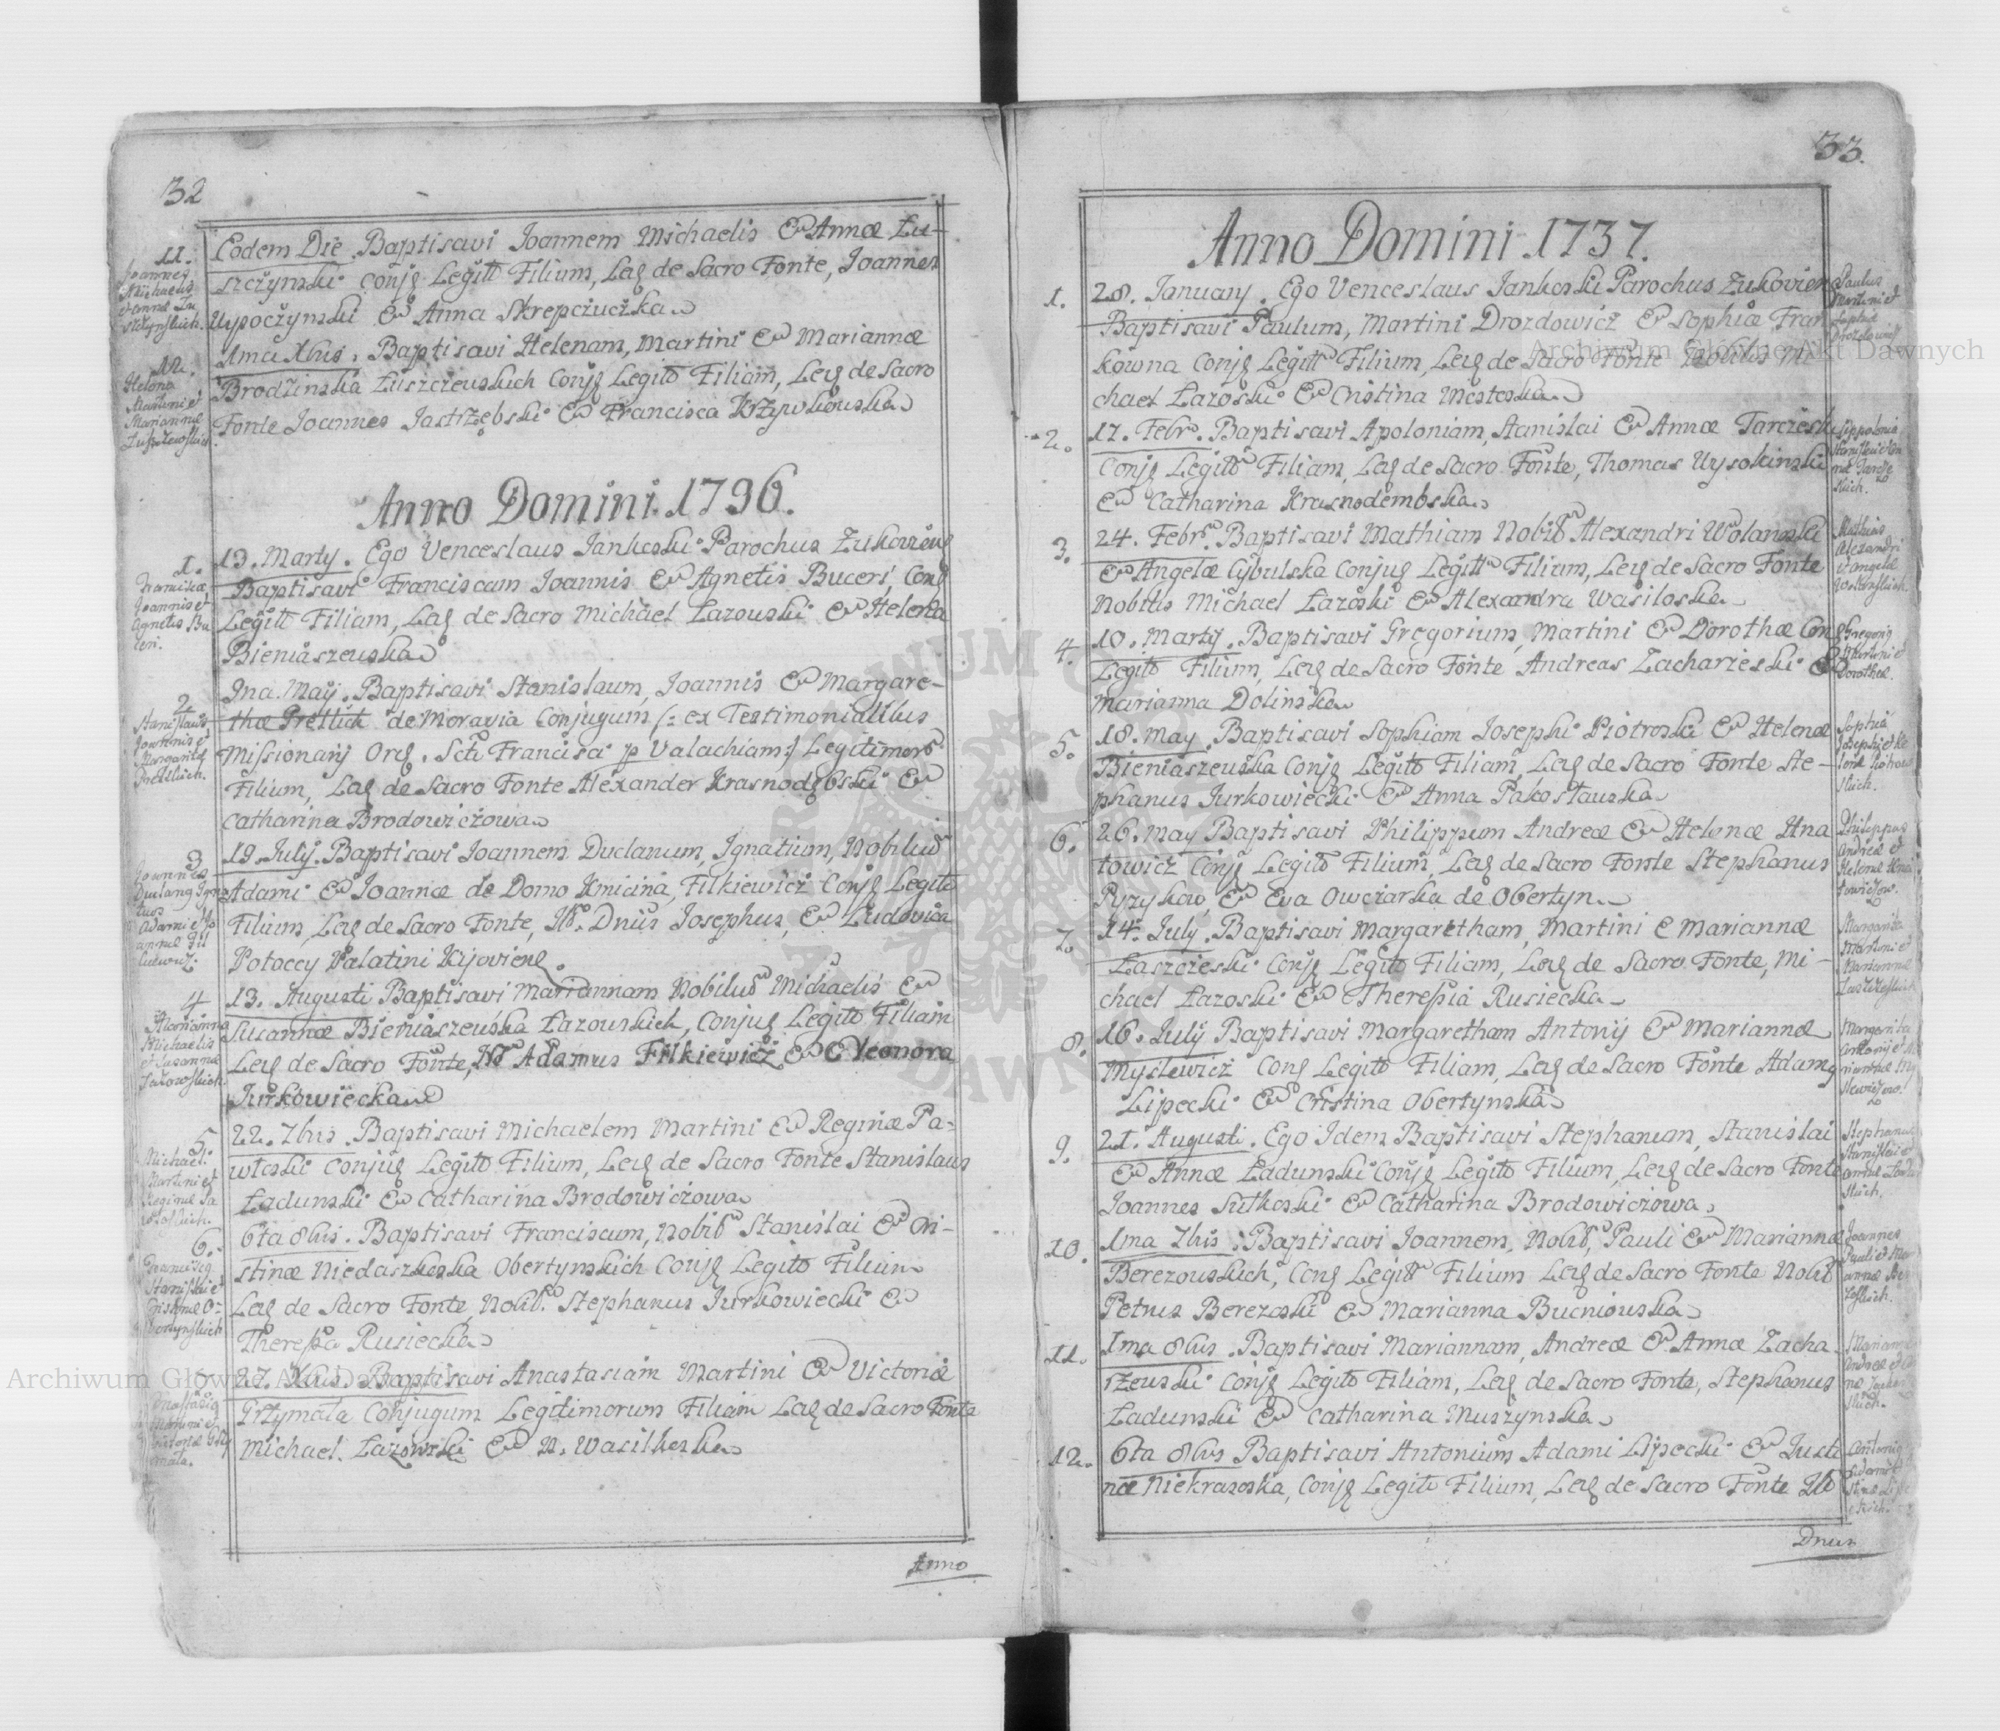 32
11.
Joannes
Michaelis
et Annæ Łu
szczynskich.
Eodem Die. Baptisavi Joannem Michaelis & Annæ Łu-
szczynski conjg Legitt Filium, Leg de Sacro Fonte, Joannes
Wypoczynski & Anna Skrepczuczka
12.
Helena
Martini et
Mariannæ
1ma Xbris. Baptisavi Helenam, Martini & Mariannæ
Brodzinska Łuszczewskich Conjg Legitt Filiam, Leg de Sacro
Fonte Joannes Jastrzębski & Francisca Krzywkowska
Anno Domini. 1736.
1.
Francisca
Joannis et
Agnetis Bu
ceri.
13. Marty. Ego Venceslaus Jankoski Parochus Zukovien
Baptisavi Franciscam Joannis & Agnetis Buceri, Conjg
Legitt Filiam, Leg de Sacro Michael Łazowski & Helena
Bieniaszewska
2
Stanislaus
Joannis et
Margarithæ
Pretlich.
Ina. Maÿ. Baptisavi Stanislaum, Joannis & Margare-
thæ Pretlich de Moravia Conjugum (: ex Testimonialibus
Missionarÿ Org. Scti Francisci p Valachiam:) Legitimorō
Filium, Leg de Sacro Fonte Alexander Krasnodębski &
Catharina Brodowiczowa
3
Joannes
Duclang Igna
tius
Adami et Jo
annæ Fil
kiewicz.
19. Julÿ. Baptisavi Joannem Duclanum, Ignatium, Nobiluō
Adami & Joannæ de Domo Kmicina, Filkiewicz Conjg Legitt
Filium, Leg de Sacro Fonte, Ill. Dnus Josephus, & Ludovica
Potoccy Palatini Kijoviene
4
Marianna
Michaelis
et Susannæ
Łazowskich.
13. Augusti Baptisavi Mariannam Nobiluō Michaelis &
Susannæ Bieniaszewska Łazowskich, Conjug Legitt Filiam
Leg de Sacro Fonte, Adamus Filkiewicz & Eleonora
Jurkowiecka
5
Michael
Martini et
Reginæ Pa
wloskich.
22. 7bris. Baptisavi Michaelem Martini & Reginæ Pa-
włoski Conjug Legitt Filium, Leg de Sacro Fonte Stanislaus
Ładunski & Catharina Brodowiczowa
6.
Francisg
Stanislai et
Cristinæ O:
bertynskich
6ta 8bris. Baptisavi Franciscum, Nobil Stanislai & Cri-
stinæ Niedaszkoska Obertynskich Conjg Legitt Filium
Leg de Sacro Fonte, Nobil. Stephanus Jurkowiecki &
Theressa Rusiecka
7
Anastasia
Martini et
Victoriæ Grzy
mala.
27. Xbris. Baptisavi Anastasiam Martini & Victoriæ
Grzymała Conjugum Legitimorum Filiam Leg de Sacro Fonte
Michael. Łazowski & N. Wasilkoska
Anno
33.
Anno Domini 1737.
1.
28. January. Ego Venceslaus Jankoski Parochus Zukovien
Baptisavi Paulum, Martini Drozdowicz & Sophiæ Fran
kowna Conjg Legitt Filium, Leg de Sacro Fonte Nobilis Mi-
chael Łazoski & Cristina Mostoska
Paulus
Martini et
Sophiæ
Drozdowicz
2.
17. Febr. Baptisavi Apoloniam, Stanislai & Annæ Tarczeski
Conjg Legitt Filiam, Leg de Sacro Fonte, Thomas Wysokinski
& Catharina Krasnodembska
Appolonia
Stanislai et An
næ Tarcze
skich.
3.
24. Febr. Baptisavi Mathiam Nobil Alexandri Wolanski
& Angelæ Cybulska Conjug Legitt Filium, Leg de Sacro Fonte
Nobilis Michael Łazoski & Alexandra Wasiloska
Mathias
Alexandri
et Angelæ
Wolanskich.
4.
10. Martÿ. Baptisavi Gregorium, Martini & Dorothæ Conjg
Legitt Filium, Leg de Sacro Fonte Andreas Zacharzeski &
Marianna Dolinska
Gregorig
Martini et
Dorotheæ.
5.
18. May. Baptisavi Sophiam Josephi Piotroski & Helenæ
Bieniaszewska Conjg Legitt Filiam, Leg de Sacro Fonte Ste-
phanus Jurkowiecki & Anna Pakosławska
Sophia
Josephi et He
lenæ Piotrow
skich.
6.
26. May Baptisavi Philippum Andreæ & Helenæ Hna
towicz Conjg Legitt Filium, Leg de Sacro Fonte Stephanus
Pyzykow, & Eva Owczarka de Obertyn
Philippus
Andreæ et
Helenæ Hna
towiczow.
7.
14. July. Baptisavi Margaretham, Martini & Mariannæ
Łaszczeski Conjg Legitt Filiam, Leg de Sacro Fonte, Mi-
chael Łazoski & Theressia Rusiecka
Margaritha
Martini et
Mariannæ
Łaszczeskich
8.
16. Julÿ Baptisavi Margaretham Antonij & Mariannæ
Myslewicz Conjg Legitt Filiam, Leg de Sacro Fonte Adamg
Lipecki & Cristina Obertynska
Margaritha
Antonij et Ma
riannæ My
slewiczow.
9.
21. Augusti. Ego Idem Baptisavi Stephanum, Stanislai
& Annæ Ładunski Conjg Legitt Filium, Leg de Sacro Fonte
Joannes Sutkoski & Catharina Brodowiczowa
Stephanus
Stanislai et
Annæ Ładun
skich.
10.
1ma 7bris. Baptisavi Joannem, Nobil, Pauli & Mariannæ
Berezowskich, Conjg Legitt Filium Leg de Sacro Fonte Nobil
Petrus Berezoski & Marianna Bucniowska
Joannes
Pauli et Mari
annæ Be
zoskich.
11.
1ma 8bris. Baptisavi Mariannam, Andreæ & Annæ Zacha
rzewski Conjg Legitt Filiam, Leg de Sacro Fonte, Stephanus
Ładunski & Catharina Muszynska
Marianna
Andreæ et An
næ Zachar
skich.
12.
6ta 8bris Baptisavi Antonium Adami Lipecki & Justi
næ Niekrasoska, Conjg Legitt Filium, Leg de Sacro Fonte Ill
Antonig
Adami et
Lipe
ckich.
Dnus
Archiwum Główne Akt Dawnych
Archiwum Główne Akt Dawnych
ARCHIWUM GŁÓWNE AKT DAWNYCH